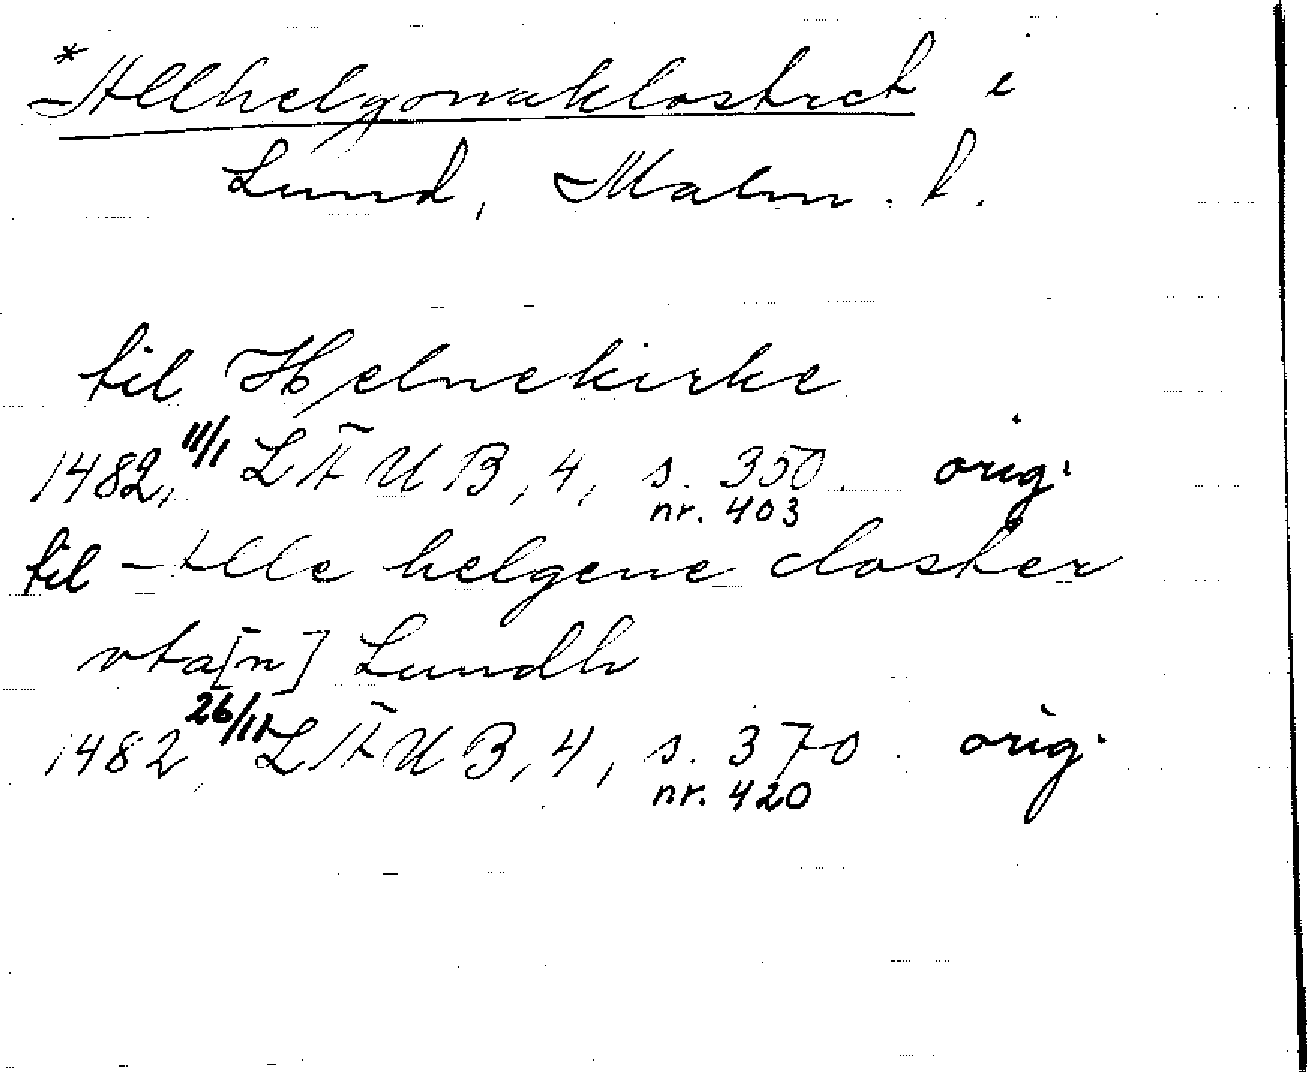 *Allhelgonaklostret i
Lund, Malm. l.
til Helnekirke
1482, 11/1 LÄUB, 4, s. 350. orig.
nr. 403
til Alle helgene closter
vta[n] Lundh
1482 26/11 LÄUB, 4, s. 370. orig.
nr. 420